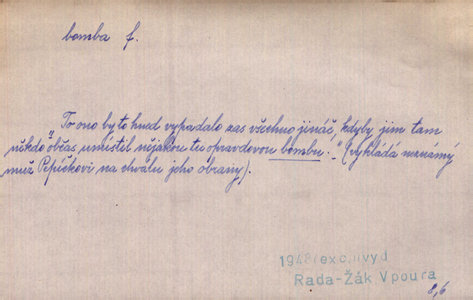 bomba f.
„To ono by to hned vypadalo zas všechno jináč, kdyby jim tam
někdo občas umístil nějakou tu opravdovou bombu." (vykládá neznámý
muž Pepíčkovi na chválu jeho obrany).
1948 (exc.) vyd
Rada-Žák Vpoura
8,6